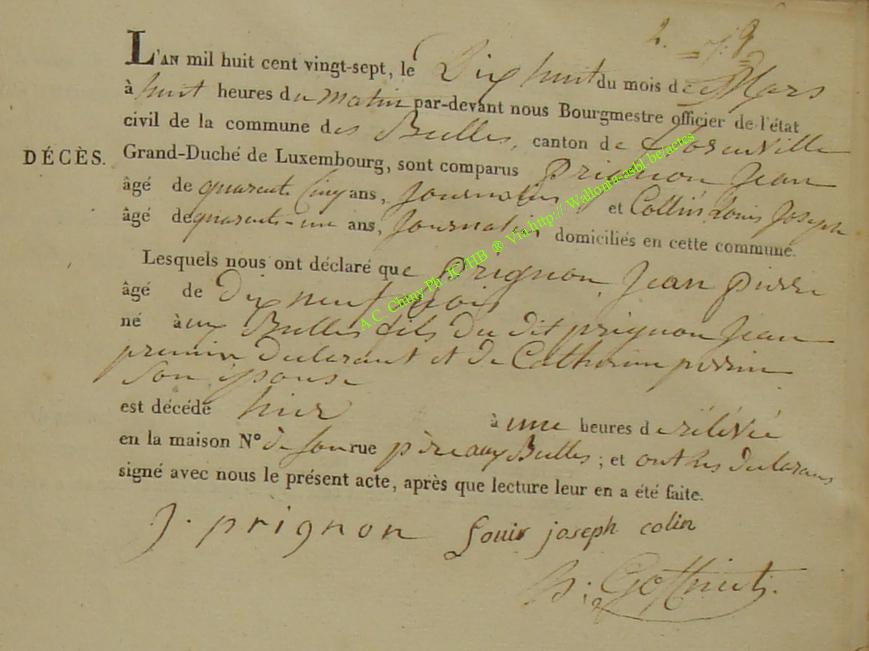 2. 9
L'AN mil huit cent vingt-sept, le Dix huit du mois de Mars
à huit heures du matin par-devant nous Bourgmestre officier de l'état
civil de la commune des Bulles, canton de florenville
DÉCÈS. Grand-Duché de Luxembourg, sont comparus Prignon Jean
âgé de quarante Cinq ans, Journalier et Collin Louis Joseph
âgé de quarante-une ans, Journalier domiciliés en cette commune.
Lesquels nous ont déclaré que Prignon Jean Pierre
âgé de Dix neuf mois
né à aux Bulles fils du dit prignon Jean
premier declarant et de Catherine perrin
son epouse
est décédé hier à une heures de rélévée
en la maison N° de son rue père aux Bulles ; et ont les declarans
signé avec nous le présent acte, après que lecture leur en a été faite.
J. prignon Louis joseph colin
A.C. Chiny Ph JC HB ® Via http:// Wallonia-asbl be/actes